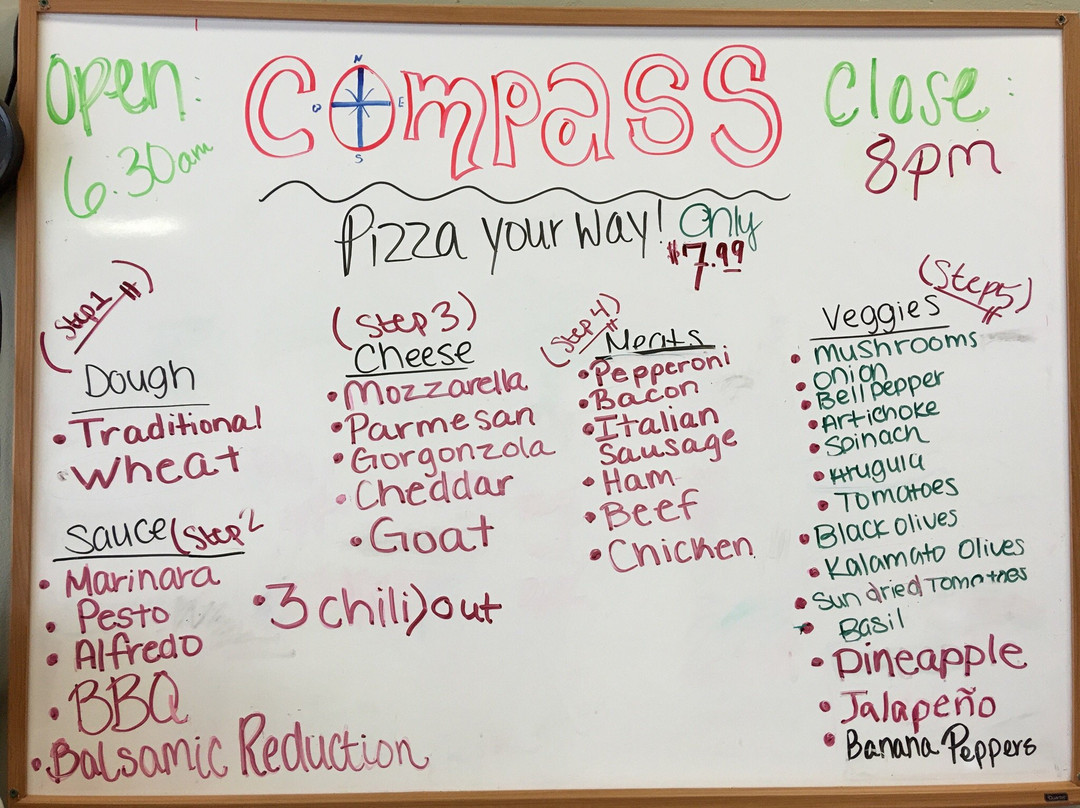 Open:
6:30am
COMPASS
N
O E
S
Close:
8pm
Pizza your way! Only
$7.99
(Step 1)
Dough
• Traditional
• Wheat
Sauce (Step 2
• Marinara
• Pesto
• Alfredo
• BBQ
• Balsamic Reduction
(Step 3)
Cheese
• Mozzarella
• Parmesan
• Gorgonzola
• Cheddar
• Goat
• 3 chili) out
(Step 4)
Meats
• Pepperoni
• Bacon
• Italian
Sausage
• Ham
• Beef
• Chicken
(Step 5)
Veggies
• mushrooms
• onion
• Bell pepper
• Artichoke
• Spinach
• Arugula
• Tomatoes
• Black olives
• Kalamato Olives
• Sun dried Tomatoes
• Basil
• Pineapple
• Jalapeño
• Banana Peppers